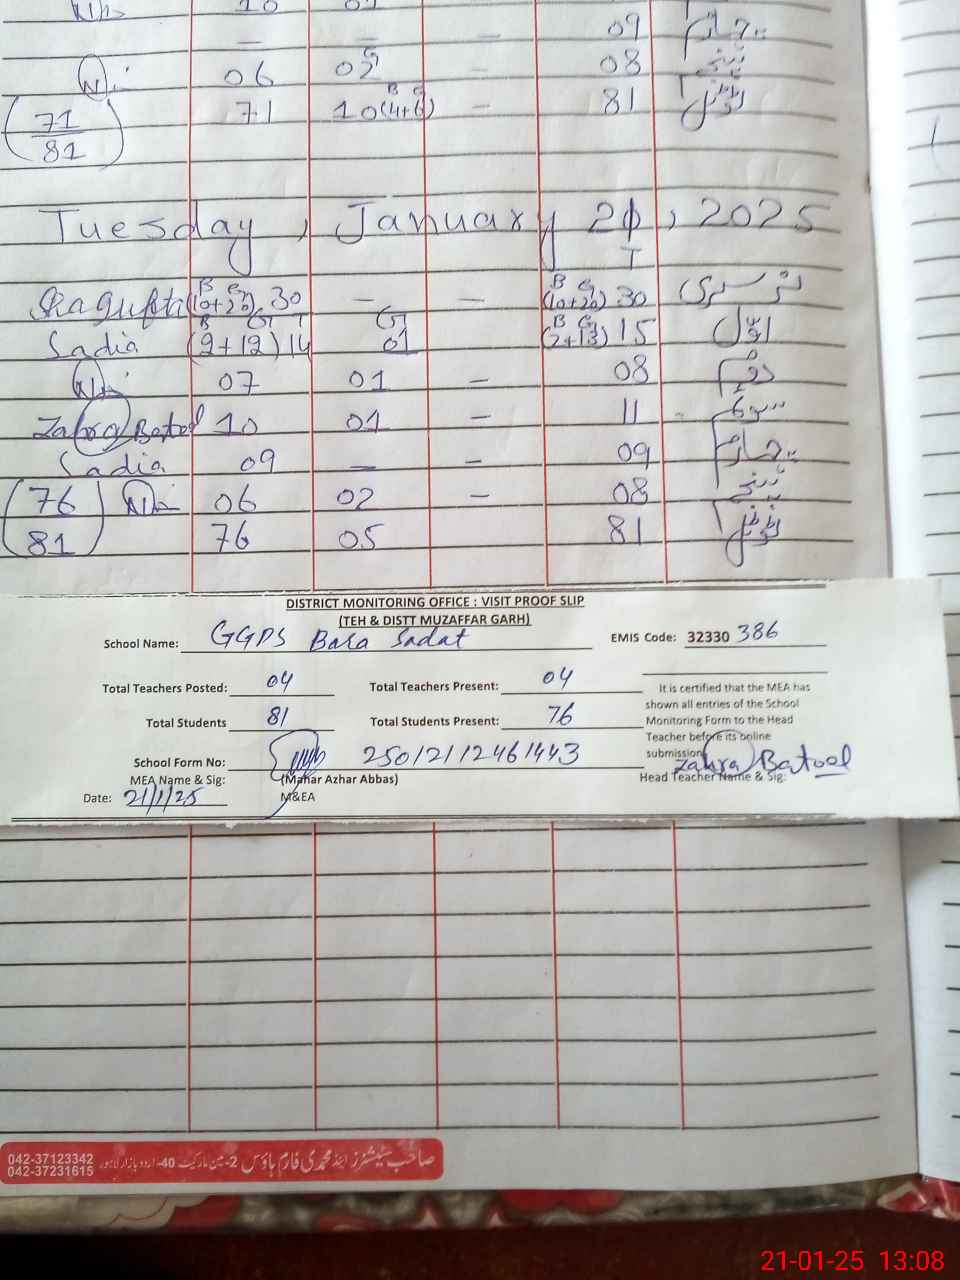 10
— — — 09 چہارم
06 02 G — 08 پنجم
71 10(4+6) B G — 81 ٹوٹل
71
81
Tuesday, January 21, 2025
T
Shagufta (10+20) 30 B G — — (10+20) 30 B G نرسری
Sadia (2+12) 14 B G T 01 G (2+13) 15 B G اوّل
07 01 — 08 دوم
Zahra Batool 10 01 — 11 سوم
Sadia 09 — — 09 چہارم
76 06 02 — 08 پنجم
81 76 05 81 ٹوٹل
DISTRICT MONITORING OFFICE : VISIT PROOF SLIP
(TEH & DISTT MUZAFFAR GARH)
School Name: GGPS Bara Sadat EMIS Code: 32330 386
Total Teachers Posted: 04 Total Teachers Present: 04
Total Students 81 Total Students Present: 76
School Form No: 25012112461443
It is certified that the MEA has
shown all entries of the School
Monitoring Form to the Head
Teacher before its online
submission
Zahra Batool
MEA Name & Sig: (Mahar Azhar Abbas) Head Teacher Name & Sig:
Date: 21/1/25 M&EA
042-37123342
042-37231615
صاحب سٹیشنرز اینڈ محمدی فارم ہاؤس 2-مین مارکیٹ 40-اردو بازار لاہور
21-01-25 13:08